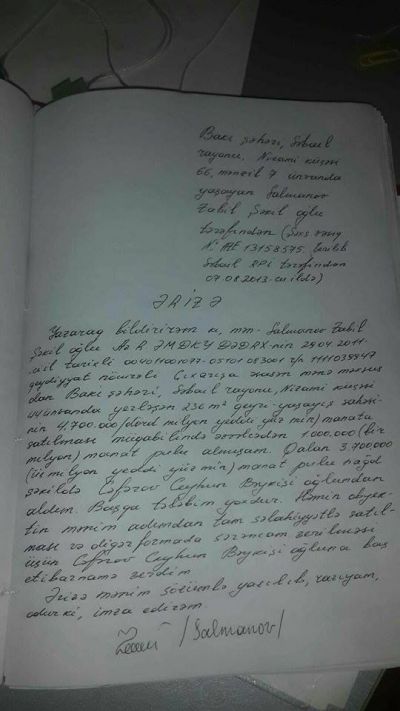 Bakı şəhəri, Səbail
rayonu, Nizami küçəsi
66, mənzil 7 ünvanda
yaşayan Salmanov
Zabil Şəkil oğlu
tərəfindən (Şəxs vəsiq
N: AE 13158575 verilib
Səbail RPİ tərəfindən
07.08.2013-cü ildə)
ƏRİZƏ
Yazaraq bildirirəm ki, mən Salmanov Zabil
Şəkil oğlu AzR ƏMDKY DƏDRX-nin 29.04.2011-
ci il tarixli
qeydiyyat nömrəli Çıxarışa əsasən mənə məxsus
olan Bakı şəhəri, Səbail rayonu, Nizami küçəsi
ünvanda yerləşən 236 m² qeyri yaşayış sahəsi-
nin 4.700.000 (dörd milyon yeddi yüz min) manata
satılması müqabilində əvvəlcədən 1.000.000 (bir
milyon) manat pulu almışam. Qalan 3.700.000
(üç milyon yeddi yüz min) manat pulu nağd
şəkildə Cəfərov Ceyhun Bəykişi oğlundan
aldım. Başqa tələbim yoxdur. Həmin obyek-
tin mənim adımdan tam səlahiyyətlə satıl-
ması və digər formada sərəncam verilməsi
üçün Cəfərov Ceyhun Bəykişi oğluna baş
etibarnamə verdim.
Ərizə mənim sözümlə yazılıb, razıyam,
odur ki, imza edirəm
/Salmanov/